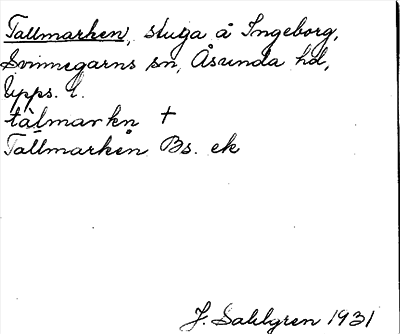 Tallmarken, stuga å Ingeborg,
Svinnegarns sn, Åsunda hd,
Upps. l.
tàlmarkn +
Tallmarken Bs. ek
J. Sahlgren 1931